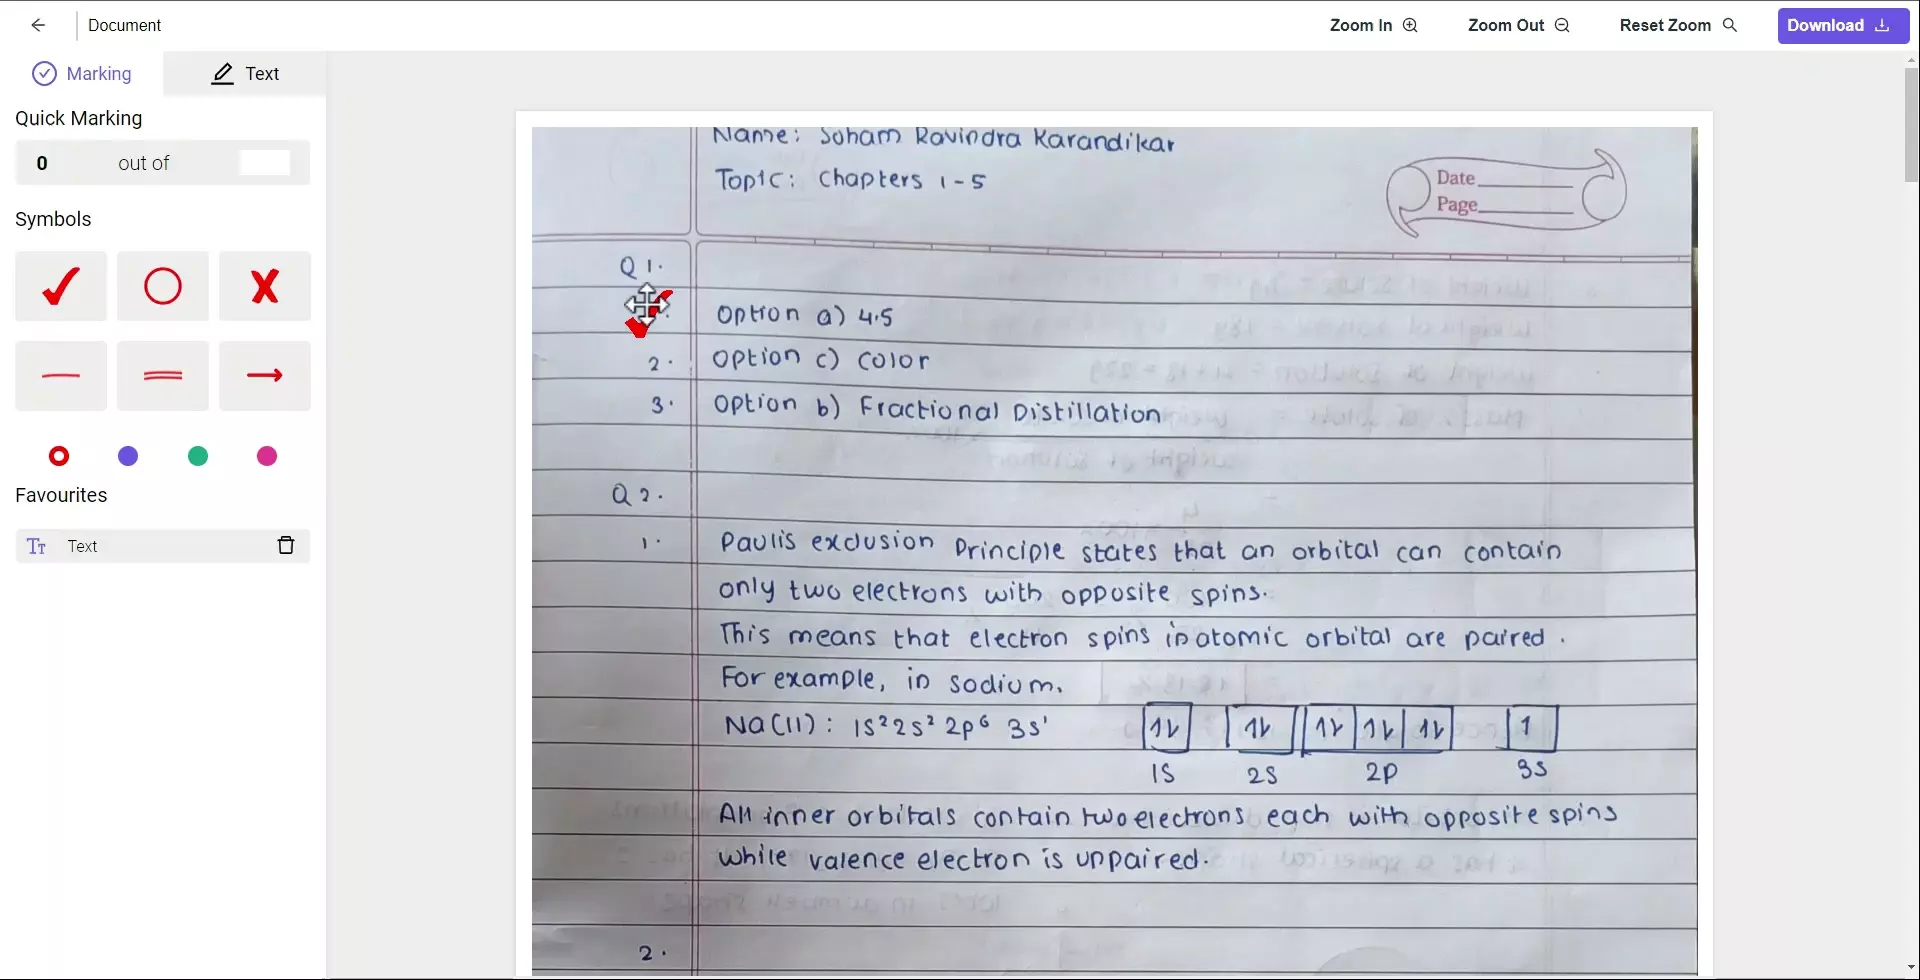 Document
Zoom In
Zoom Out
Reset Zoom
Download
Marking
Text
Quick Marking
0 out of
Symbols
Favourites
Text
Name: Soham Ravindra Karandikar
Topic: Chapters 1-5
Date
Page
Q 1.
Option a) 4.5
2. Option c) Color
3. Option b) Fractional Distillation
Q 2.
1. Paulis exclusion Principle states that an orbital can contain
only two electrons with opposite spins.
This means that electron spins in atomic orbital are paired.
For example, in sodium.
Na(11): 1s² 2s² 2p⁶ 3s¹ 1L 1L 1L 1L 1L 1
1S 2S 2P 3S
All inner orbitals contain two electrons each with opposite spins
while valence electron is unpaired.
2.